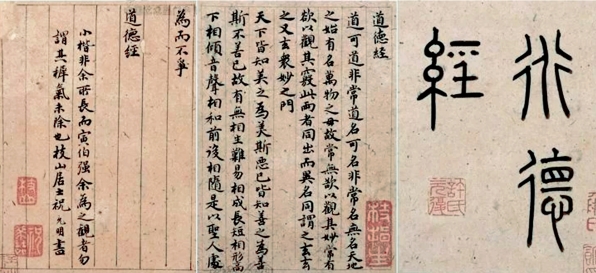 道德
經
道德經
道可道非常道名可名非常名無名天地
之始有名萬物之母故常無欲以觀其妙常有
欲以觀其竅此兩者同出而異名同謂之玄玄
之又玄衆妙之門
天下皆知美之爲美斯惡已皆知善之爲善
斯不善已故有無相生難易相成長短相形高
下相傾音聲相和前後相隨是以聖人處
為而不爭
道德經
小楷非余所長而寅伯强余為之觀者勿
謂其稚氣未除也枝山居士祝允明書